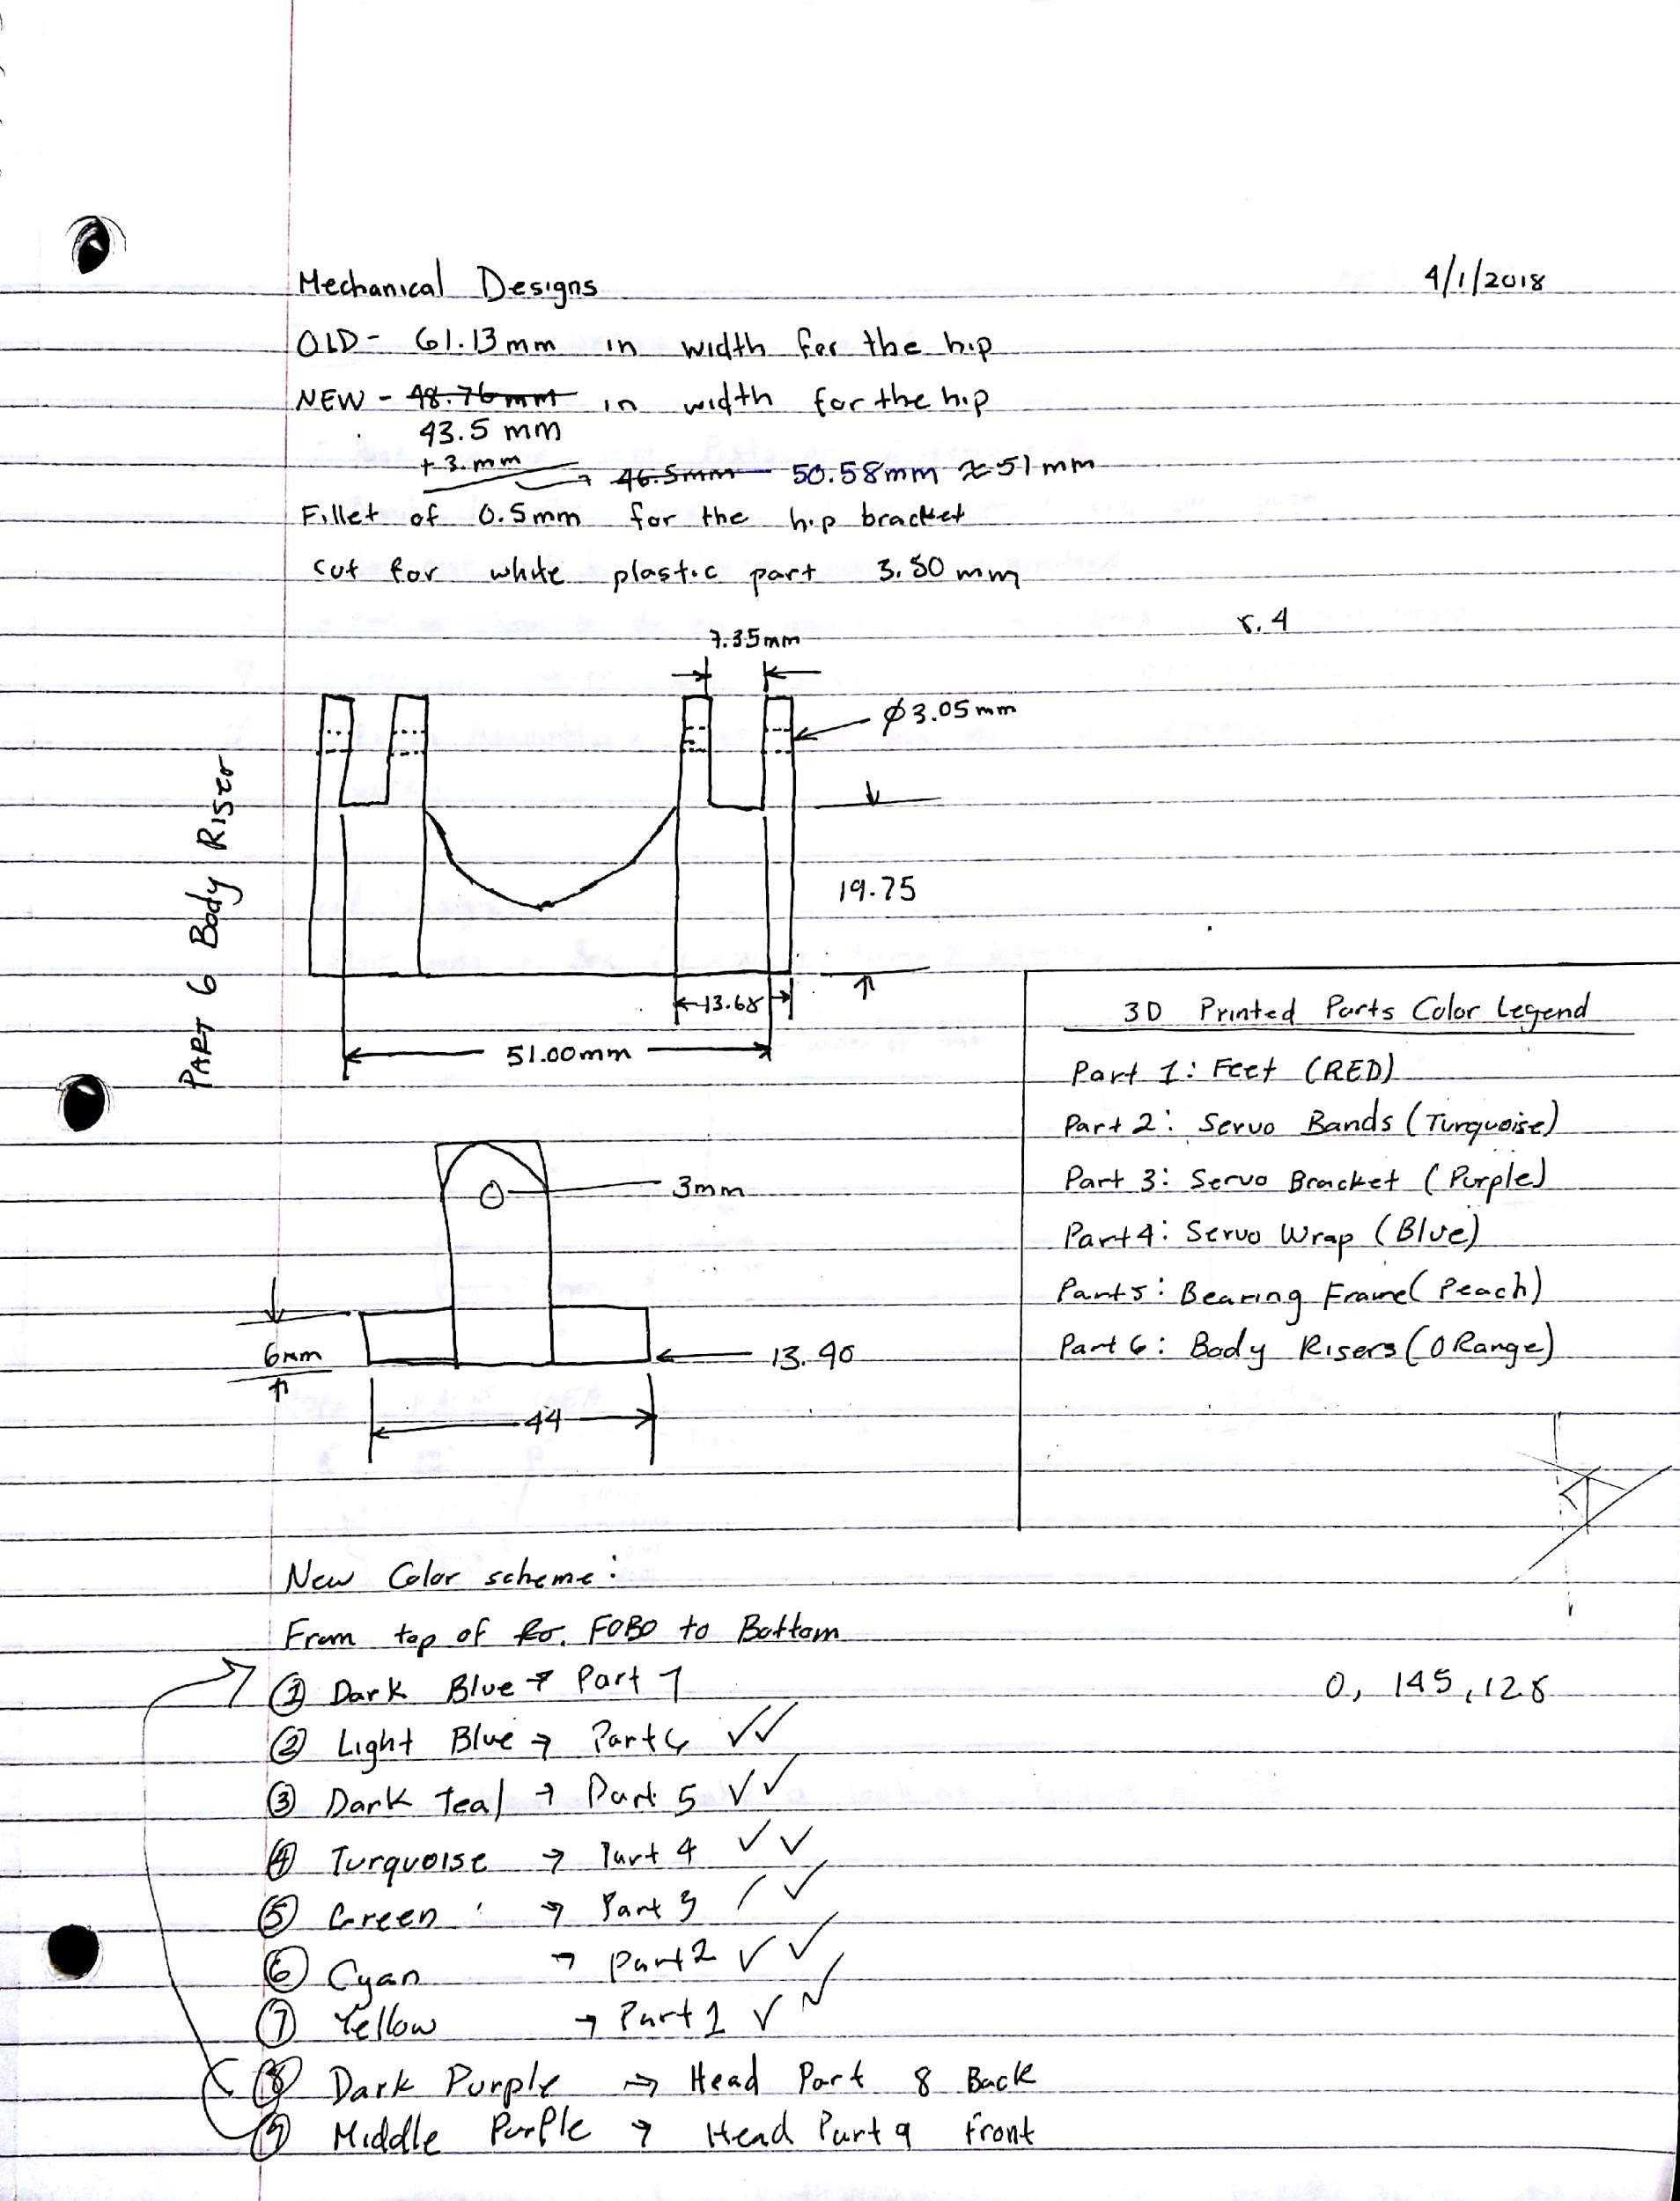 Mechanical Designs 4/1/2018
OLD - 61.13mm in width for the hip
NEW - 48.76mm in width for the hip
43.5 mm
+ 3.mm → 46.5mm 50.58mm ≈ 51mm
Fillet of 0.5mm for the hip bracket
cut for white plastic part 3.50 mm
r.4
7.35mm
Ø3.05mm
PART 6 Body Riser
19.75
13.68
51.00mm
3mm
6mm
13.90
44
3D Printed Parts Color Legend
Part 1: Feet (RED)
Part 2: Servo Bands (Turquoise)
Part 3: Servo Bracket (Purple)
Part 4: Servo Wrap (Blue)
Part 5: Bearing Frame (Peach)
Part 6: Body Risers (ORange)
New Color scheme:
From top of Ro. FOBO to Bottom
① Dark Blue → Part 7
0, 145, 128
② Light Blue → Part 6 ✓✓
③ Dark teal → Part 5 ✓✓
④ Turquoise → Part 4 ✓✓
⑤ Green → Part 3 /✓
⑥ Cyan → Part 2 ✓✓
⑦ Yellow → Part 1 ✓✓
⑧ Dark Purple → Head Part 8 Back
⑨ Middle Purple → Head Part 9 Front